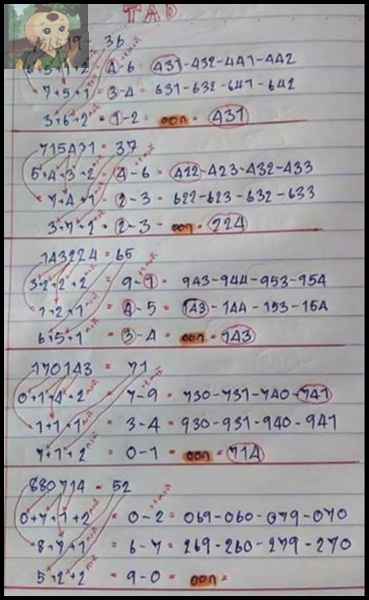 TAD
36
6+5+1+2 = 4-6 = 431-432-441-442
7+5+1 = 3-4 = 631-632-641-642
3+6+2 = 1-2 = ออก = 431
715431 = 37
5+4+3+2 = 4-6 = 412-423-432-433
7+4+1 = 2-3 = 622-623-632-633
3+7+2 = 2-3 = ออก = 224
143224 = 65
3+2+2+2 = 9-1 = 943-944-953-954
1+2+1 = 4-5 = 143-144-153-154
6+5+1 = 3-4 = ออก = 143
170143 = 71
0+1+4+2 = 7-9 = 730-731-740-741
1+1+1 = 3-4 = 930-931-940-941
7+1+2 = 0-1 = ออก = 714
880714 = 52
0+7+1+2 = 0-2 = 069-060-079-070
8+7+1 = 6-7 = 269-260-279-270
5+2+2 = 9-0 = ออก =